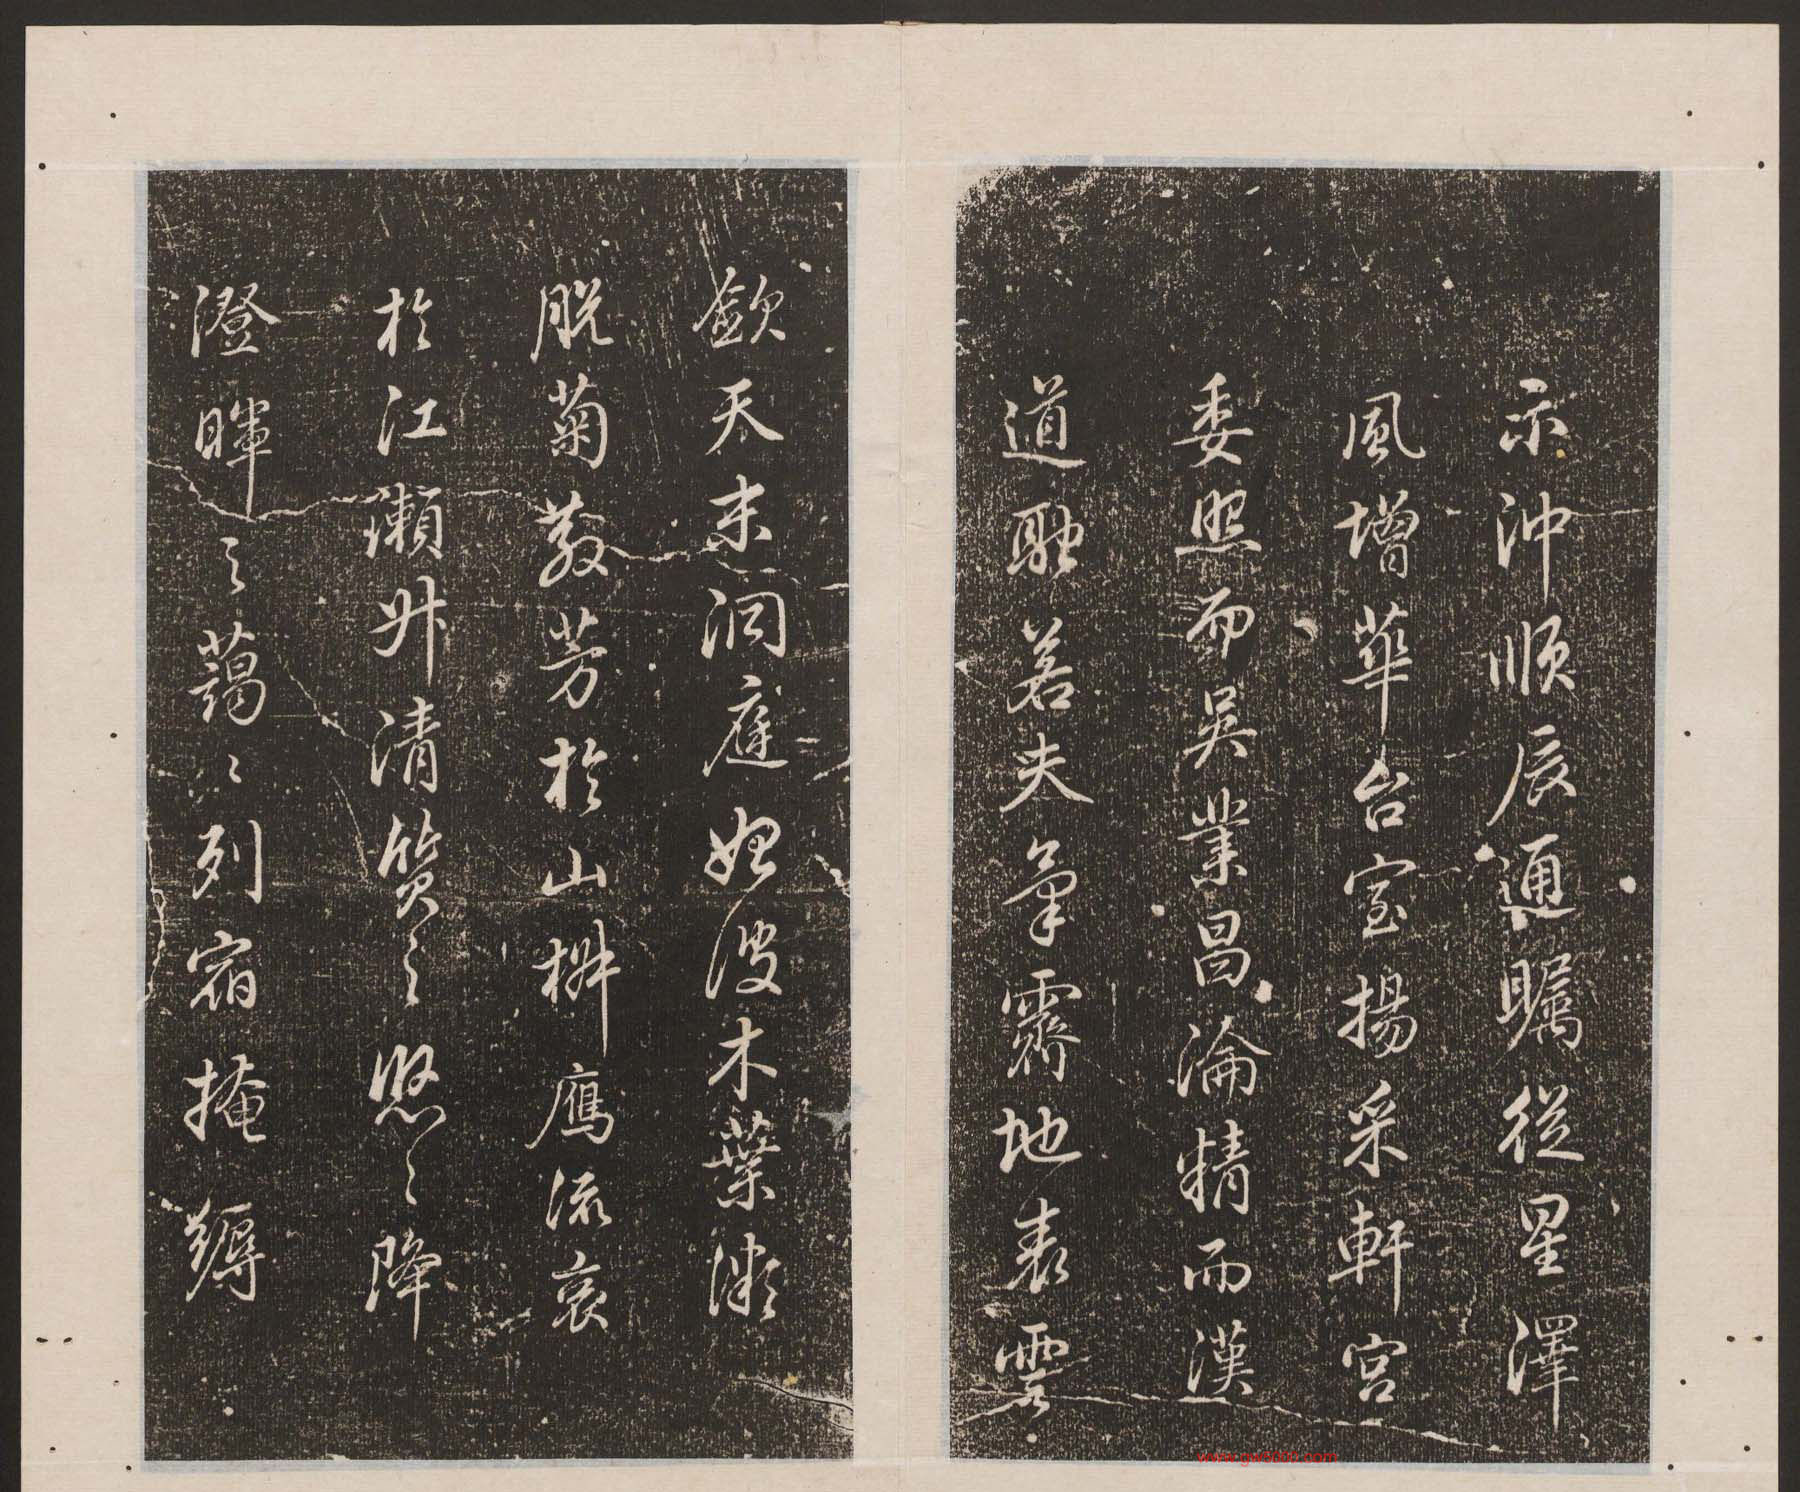 示沖順辰通瞩從星澤
風增華台室揚采軒宮
委照而吳業昌淪精而漢
道融若夫氣霽地表雲
歛天末洞庭始波木葉微
脱菊散芳於山椒鴈流哀
於江瀨升清質之悠〻降
澄暉之藹〻列宿掩縟
www.gw8500.com